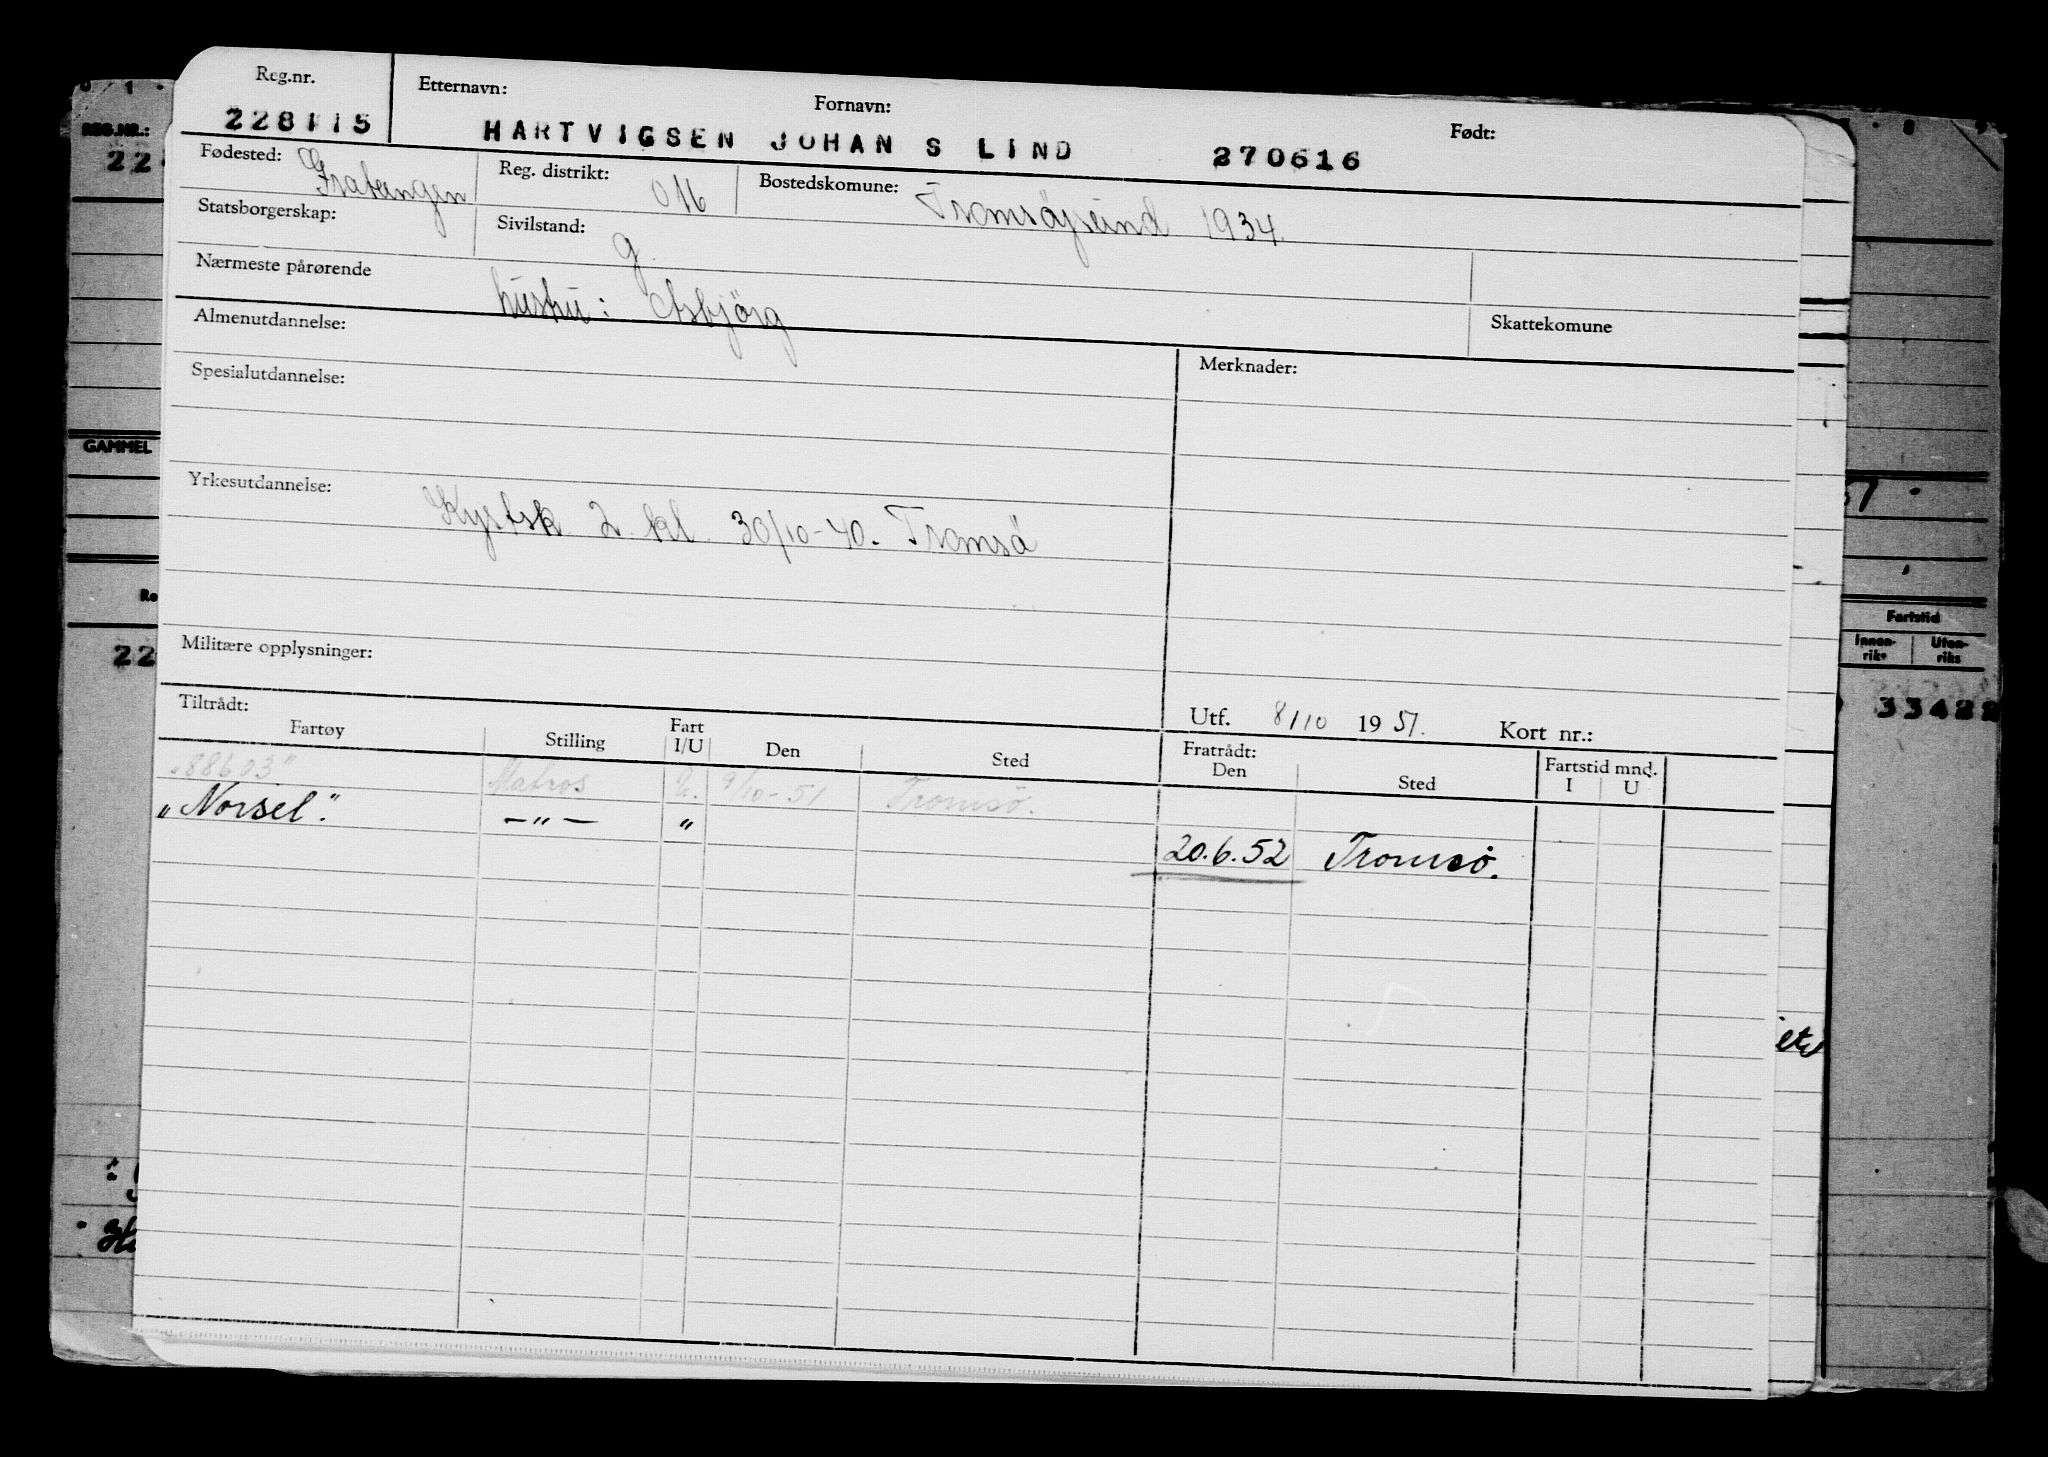 Reg.nr. Etternavn: Fornavn: Født:
228115 HARTVIGSEN JOHAN S LIND 270616
Fødested: Gratangen Reg. distrikt: 016 Bostedskomune: Tromsöysund 1934.
Statsborgerskap: Sivilstand: g.
Nærmeste pårørende hustru: Asbjörg
Almenutdannelse: Skattekomune
Spesialutdannelse: Merknader:
Yrkesutdannelse: Kystsk 2. kl. 30/10-40. Tromsö
Militære opplysninger:
Tiltrådt: Utf. 8/10 1951. Kort nr.:
Fartøy Stilling Fart I/U Den Sted Fratrådt: Den Sted Fartstid mnd. I U
"88603" Matros U. 9/10-51 Tromsö.
"Norsel". —"— "
20.6.52 Tromsø.
REG.NR.:
22
GAMMEL
22
Fartstid
Innen-riks Uten-riks
33422